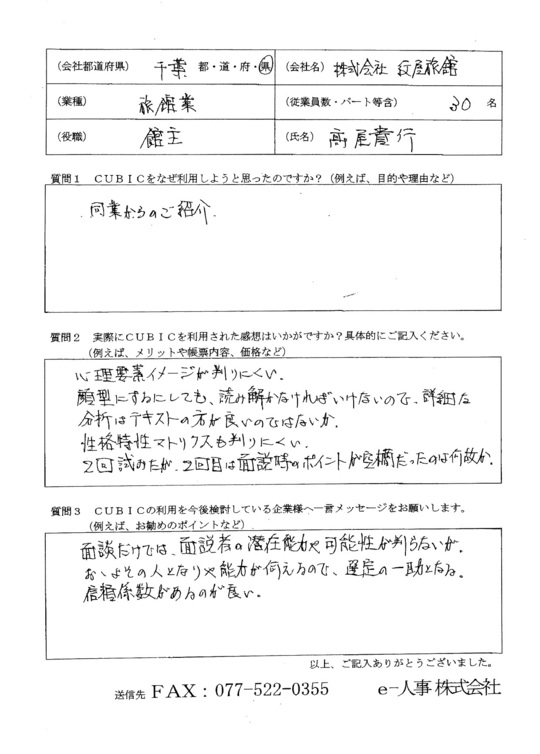 （会社都道府県） 千葉 都・道・府・県 （会社名） 株式会社 紋屋旅館
（業種） 旅館業 （従業員数・パート等含） 30 名
（役職） 館主 （氏名） 高尾貴行
質問１ ＣＵＢＩＣをなぜ利用しようと思ったのですか？（例えば、目的や理由など）
・同業からのご紹介．
質問２ 実際にＣＵＢＩＣを利用された感想はいかがですか？具体的にご記入ください。
（例えば、メリットや帳票内容、価格など）
心理要素イメージが判りにくい．
顔型にするにしても、読み解かなければいけないので、詳細な
分析はテキストの方が良いのではないか．
性格特性マトリクスも判りにくい．
2回試みたが、2回目は面説時のポイントが空欄だったのは何故か．
質問３ ＣＵＢＩＣの利用を今後検討している企業様へ一言メッセージをお願いします。
（例えば、お勧めのポイントなど）
面談だけでは、面説者の潜在能力や可能性が判らないが、
おおよその人となりや能力が伺えるので、選定の一助となる．
信頼係数があるのが良い．
以上、ご記入ありがとうございました。
送信先 ＦＡＸ：077-522-0355 e-人事 株式会社